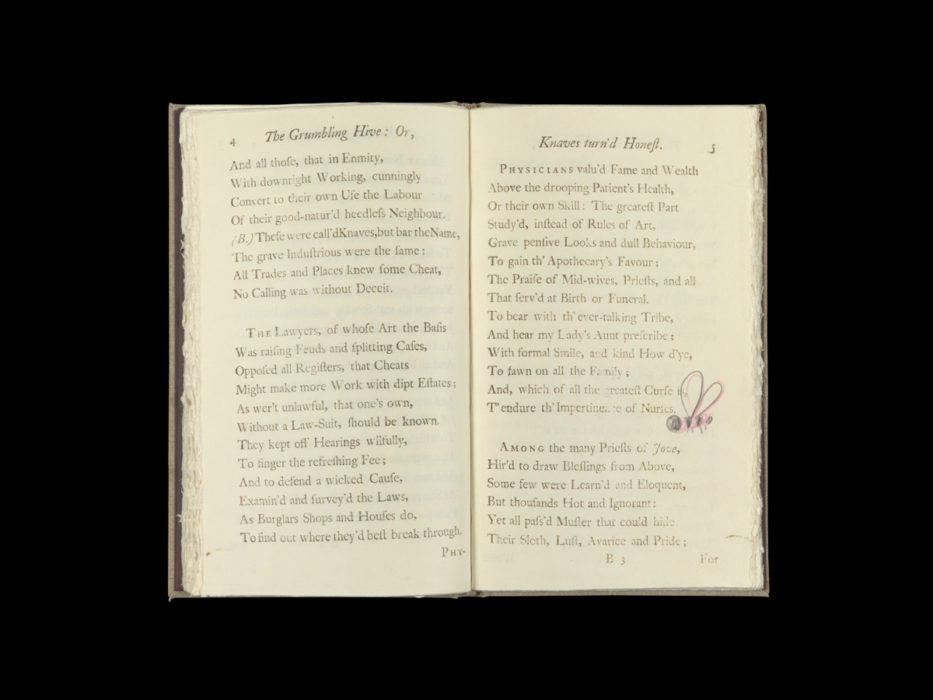 4
The Grumbling Hive: Or,
And all thoſe, that in Enmity,
With downright Working, cunningly
Convert to their own Uſe the Labour
Of their good-natur'd heedleſs Neighbour.
(B.) Theſe were call'd Knaves, but bar the Name,
The grave Induſtrious were the ſame:
All Trades and Places knew ſome Cheat,
No Calling was without Deceit.
THE Lawyers, of whoſe Art the Baſis
Was raiſing Feuds and ſplitting Caſes,
Oppoſed all Regiſters, that Cheats
Might make more Work with dipt Eſtates;
As wer't unlawful, that one's own,
Without a Law-Suit, ſhould be known.
They kept off Hearings wilfully,
To finger the refreſhing Fee;
And to defend a wicked Cauſe,
Examin'd and ſurvey'd the Laws,
As Burglars Shops and Houſes do,
To find out where they'd beſt break through.
PHY-
Knaves turn'd Honeſt.
5
PHYSICIANS valu'd Fame and Wealth
Above the drooping Patient's Health,
Or their own Skill: The greateſt Part
Study'd, inſtead of Rules of Art,
Grave penſive Looks and dull Behaviour,
To gain th' Apothecary's Favour;
The Praiſe of Mid-wives, Prieſts, and all
That ſerv'd at Birth or Funeral.
To bear with th' ever-talking Tribe,
And hear my Lady's Aunt preſcribe;
With formal Smile, and kind How d'ye,
To fawn on all the Family;
And, which of all the greateſt Curſe is,
T' endure th' Impertinence of Nurſes.
AMONG the many Prieſts of Jove,
Hir'd to draw Bleſſings from Above,
Some few were Learn'd and Eloquent,
But thouſands Hot and Ignorant:
Yet all paſs'd Muſter that could hide
Their Sloth, Luſt, Avarice and Pride;
B 3
For